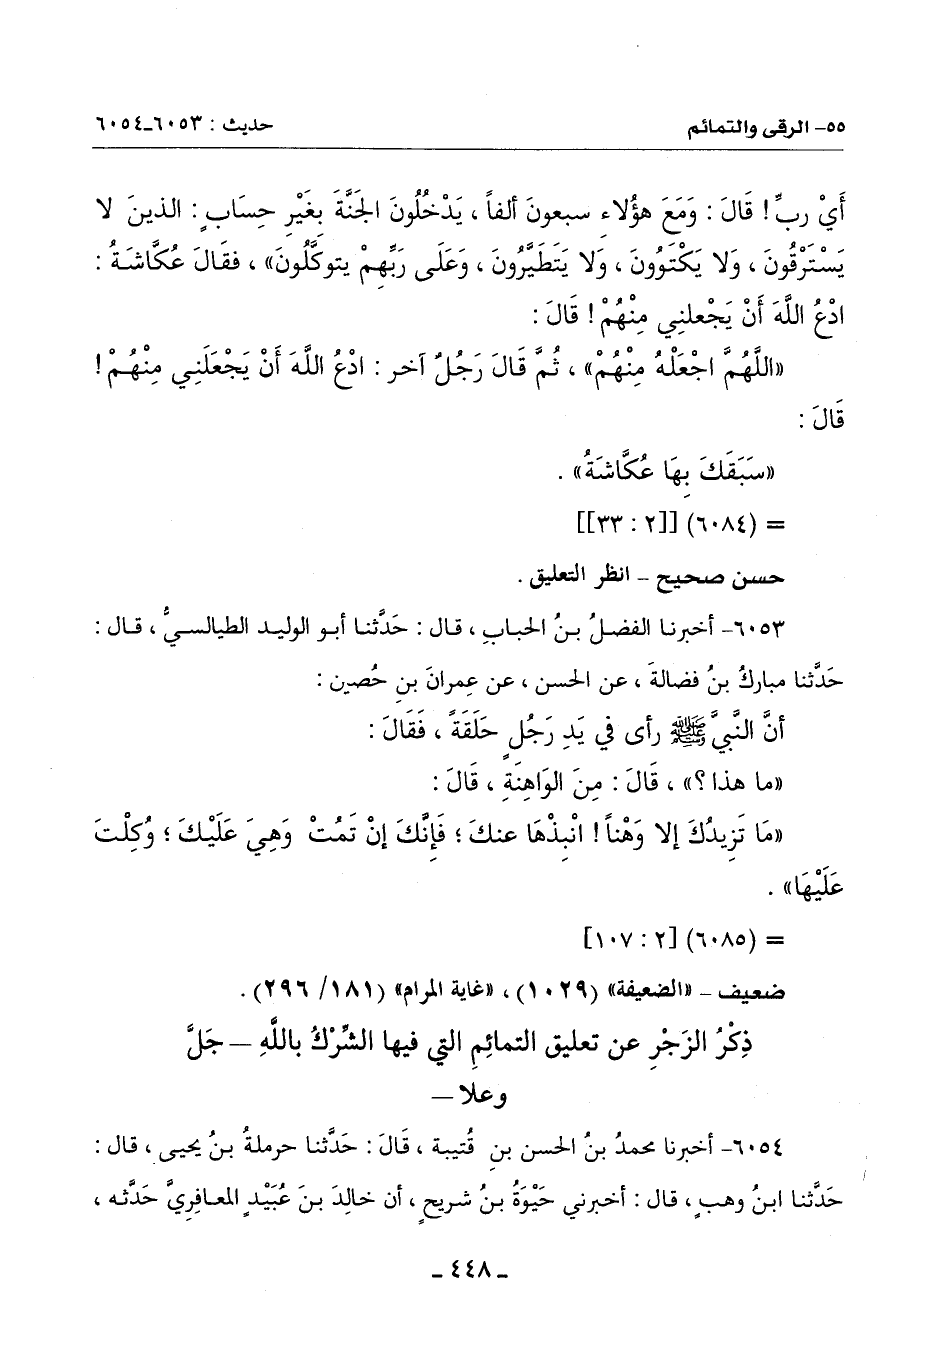 ٥٥- الرقى والتمائم
حديث : ٦٠٥٣-٦٠٥٤
أَيْ ربِّ! قَالَ : وَمَعَ هؤُلاءِ سبعونَ ألفاً ، يَدْخُلُونَ الجَنَّةَ بِغَيْرِ حِسَابٍ : الذينَ لا
يَسْتَرْقُونَ ، وَلا يَكْتَوُونَ ، وَلا يَتَطَيَّرُونَ ، وَعَلَى رَبِّهِمْ يتوكَّلُونَ» ، فقَالَ عُكَّاشَةُ :
ادْعُ اللَّهَ أَنْ يَجْعلني مِنْهُمْ! قَالَ :
«اللَّهُمَّ اجْعَلْهُ مِنْهُمْ» ، ثُمَّ قَالَ رَجُلٌ آخر : ادْعُ اللَّهَ أَنْ يَجْعَلَنِي مِنْهُم!
قَالَ :
«سَبَقَكَ بِهَا عُكَّاشَةُ» .
= (٦٠٨٤) [[٢ : ٣٣]]
حسن صحيح - انظر التعليق .
٦٠٥٣- أخبرنا الفضلُ بنُ الحبابِ ، قال : حَدَّثنا أبو الوليد الطيالسيُّ ، قال :
حَدَّثنا مباركُ بنُ فضالةَ ، عن الحسن ، عن عِمرانَ بنِ حُصين :
أنَّ النَّبيَّ ﷺ رأى في يَدِ رَجُلٍ حَلَقَةً ، فَقَالَ :
«ما هذا؟» ، قَالَ : مِنَ الوَاهِنَةِ ، قَالَ :
«مَا تَزِيدُكَ إلا وَهْناً! انْبِذْهَا عنكَ ؛ فَإِنَّكَ إنْ تَمُتْ وَهِيَ عَلَيْكَ ؛ وُكِلْتَ
عَلَيْهَا» .
= (٦٠٨٥) [٢ : ١٠٧]
ضعيف - «الضعيفة» (١٠٢٩) ، «غاية المرام» (١٨١/ ٢٩٦) .
ذِكْرُ الزَجْرِ عن تعليق التمائِمِ التي فيها الشِّرْكُ باللَّهِ - جَلَّ
وعلا -
٦٠٥٤- أخبرنا محمدُ بنُ الحسن بنِ قُتيبة ، قَالَ : حَدَّثنا حرملةُ بنُ يحيى ، قال :
حَدَّثنا ابنُ وهبٍ ، قال : أخبرني حَيْوَةُ بنُ شريحٍ ، أن خالدَ بنَ عُبَيْدٍ المعافِرِيَّ حَدَّثه ،
- ٤٤٨ -